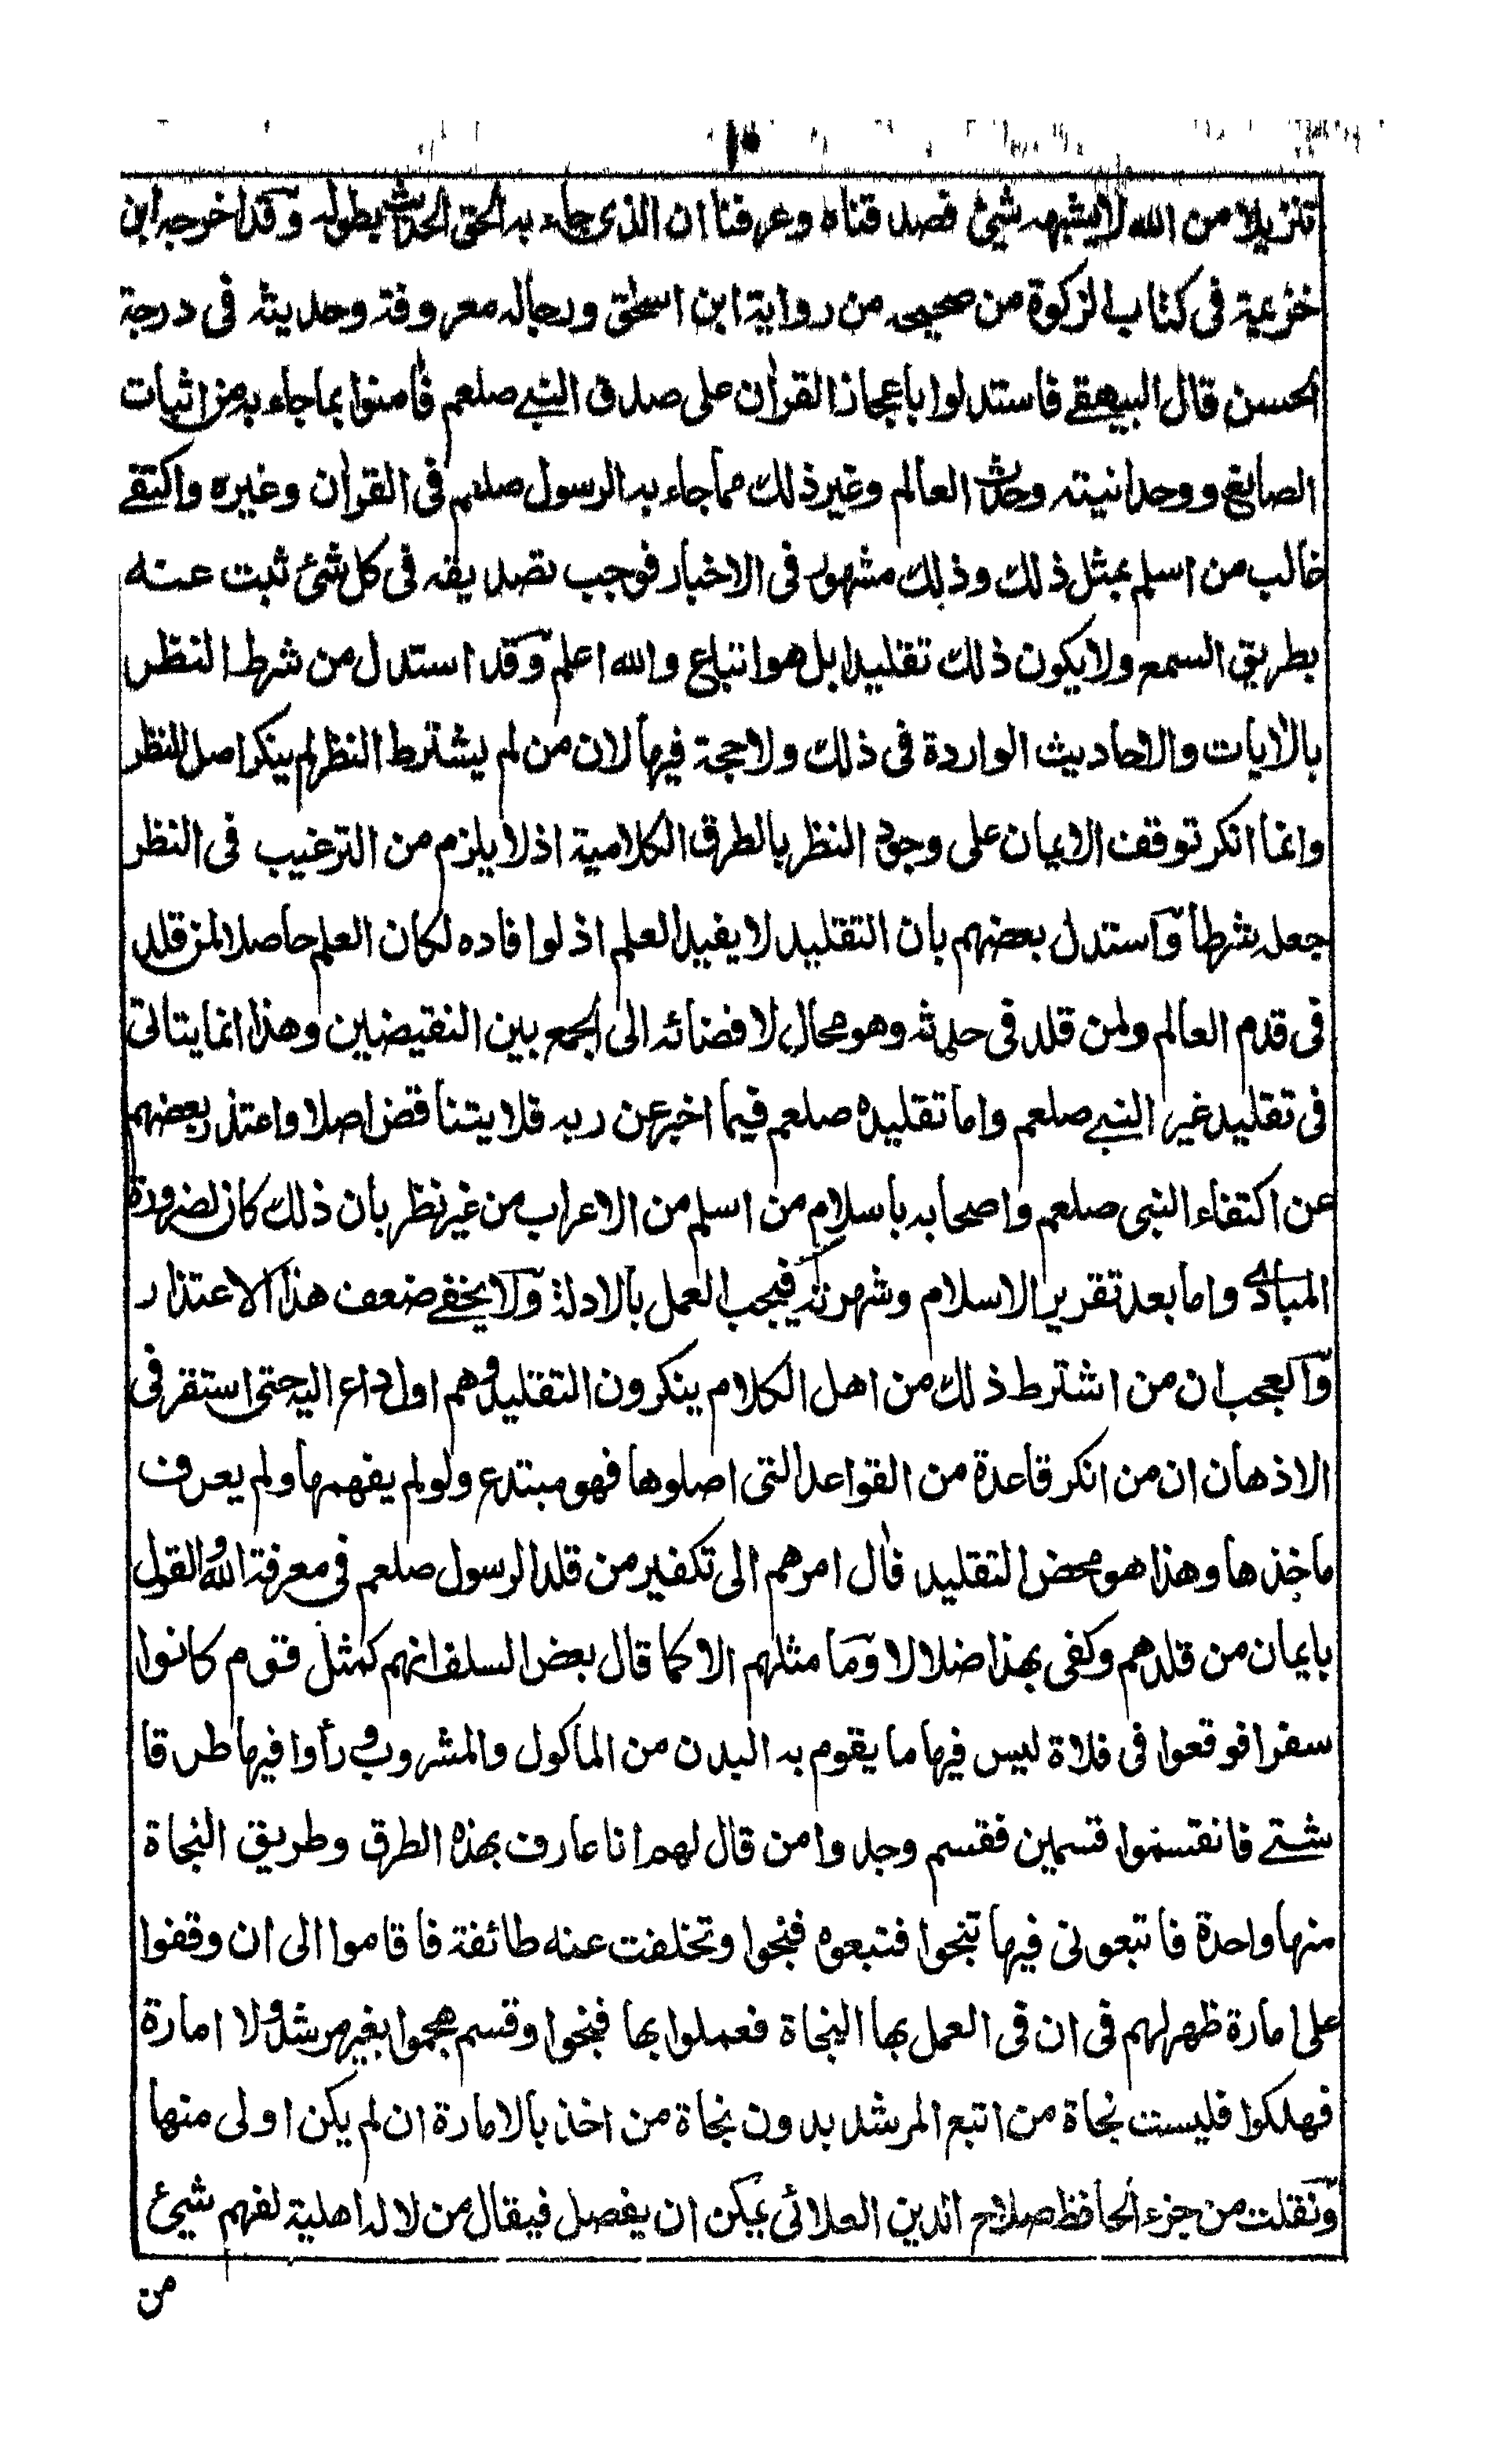 ١٠
تنزيلا من الله لا يشبهه شيئ فصدقناه وعرفنا ان الذى جاء به الحق الحديث بطوله وقد اخرجه ابن
خزيمة فى كتاب الزكوة من صحيحه من رواية ابن اسحق ورجاله معروفة وحديثه فى درجة
الحسن قال البيهقے فاستدلوا باعجاز القران على صدق النبے صلعم فامنوا بما جاء به من اثبات
الصانع ووحدانيته وحدث العالم وغير ذلك مما جاء به الرسول صلعم فى القران وغيره واكتفے
غالب من اسلم بمثل ذلك وذلك مشهور فى الاخبار فوجب تصديقه فى كل شئ ثبت عنه
بطريق السمع ولا يكون ذلك تقليدا بل هو اتباع والله اعلم وقد استدل من شرط النظر
بالآيات والاحاديث الواردة فى ذلك ولا حجة فيها لان من لم يشترط النظر لم ينكر اصل النظر
وانما انكر توقف الايمان على وجود النظر بالطرق الكلامية اذ لا يلزم من الترغيب فى النظر
جعله شرطا واستدل بعضهم بان التقليد لا يفيد العلم اذ لو افاده لكان العلم حاصلا لمن قلد
فى قدم العالم ولمن قلد فى حدثه وهو محال لافضائه الى الجمع بين النقيضين وهذا انما يتاتى
فى تقليد غير النبے صلعم واما تقليده صلعم فيما اخبر عن ربه فلا يتناقض اصلا واعتذر بعضهم
عن اكتفاء النبى صلعم واصحابه باسلام من اسلم من الاعراب من غير نظر بان ذلك كان لضرورة
المبادى واما بعد تقرير الاسلام وشهرته فيجب العمل بالادلة ولا يخفے ضعف هذا الاعتذار
والعجب ان من اشترط ذلك من اهل الكلام ينكرون التقليد وهم اول داع اليه حتى استقر فى
الاذهان ان من انكر قاعدة من القواعد التى اصلوها فهو مبتدع ولو لم يفهمها ولم يعرف
ماخذها وهذا هو محض التقليد فآل امرهم الى تكفير من قلد الرسول صلعم فى معرفة الله والقول
بايمان من قلدهم وكفى بهذا ضلالا وما مثلهم الا كما قال بعض السلف انهم كمثل قوم كانوا
سفرا فوقعوا فى فلاة ليس فيها ما يقوم به البدن من الماكول والمشروب ورأوا فيها طرقا
شتے فانقسموا قسمين فقسم وجدوا من قال لهم انا عارف بهذه الطرق وطريق النجاة
منها واحدة فاتبعونى فيها تنجوا فتبعوه فنجوا وتخلفت عنه طائفة فاقاموا الى ان وقفوا
على امارة ظهر لهم فى ان فى العمل بها النجاة فعملوا بها فنجوا وقسم هجموا بغير مرشد ولا امارة
فهلكوا فليست نجاة من اتبع المرشد بدون نجاة من اخذ بالامارة ان لم يكن اولى منها
ونقلت من جزء الحافظ صلاح الدين العلائى يمكن ان يفصل فيقال من لا له اهلية لفهم شيئ
من